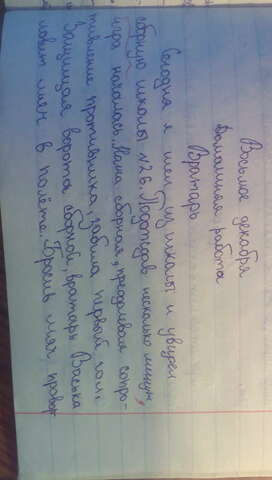 Восьмое декабря
Домашняя работа
Вратарь
Сегодня я шел из школы и увидел
сборную школы №26. Подождав несколько минут,
игра началась. Наша сборная, преодолевая сопро-
тивление противника, забила первый гол.
Защищая ворота сборной, вратарь Васька
ловит мяч в полёте. Бросив мяч, провож